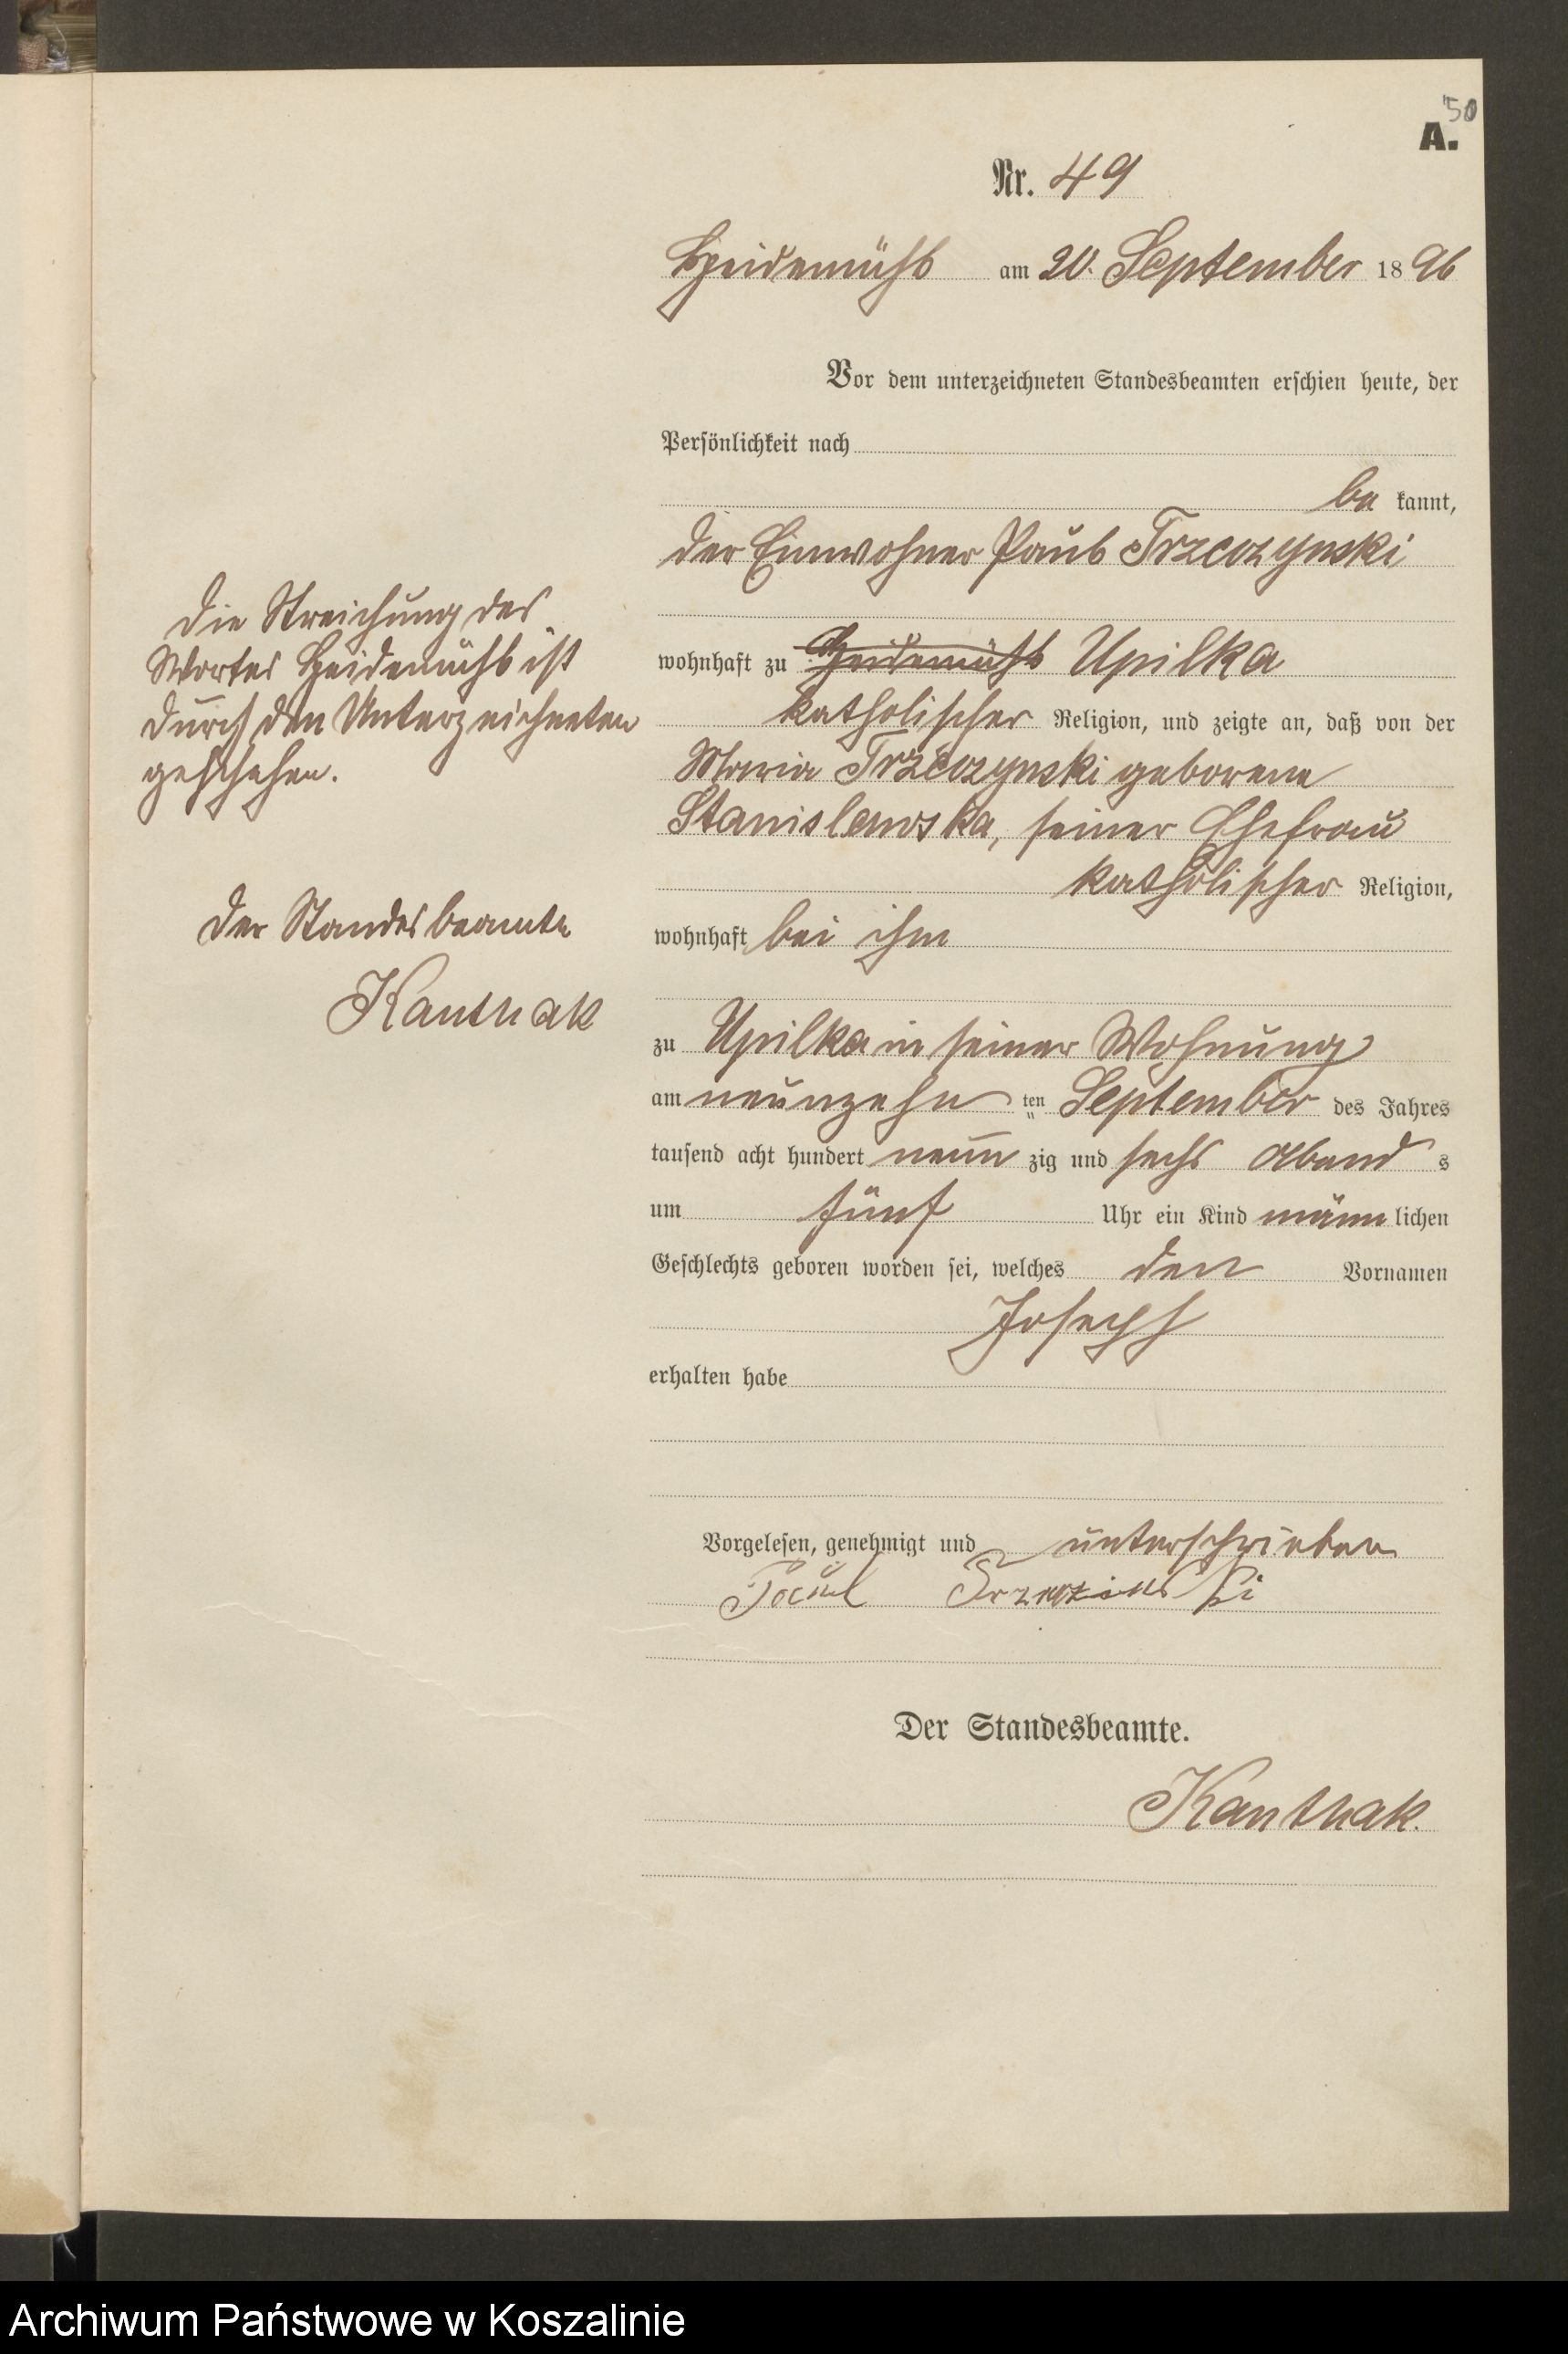 50
A.
Nr. 49
Heidemühl am 20. September 1896
Vor dem unterzeichneten Standesbeamten erschien heute, der
Persönlichkeit nach
be kannt,
der Einwohner Paul Trzcozynski
wohnhaft zu Heidemühl Upilka
katholischer Religion, und zeigte an, daß von der
Maria Trzcozynski geborene
Stanislawska, seiner Ehefrau
katholischer Religion,
wohnhaft bei ihm
zu Upilka in seiner Wohnung
am neunzehn ten September des Jahres
tausend acht hundert neun zig und sechs Abend s
um fünf Uhr ein Kind männ lichen
Geschlechts geboren worden sei, welches den Vornamen
Joseph
erhalten habe
Vorgelesen, genehmigt und unterschrieben
Paul
Der Standesbeamte.
Kanthak.
Die Streichung des
Wortes Heidemühl ist
durch den Unterzeichneten
geschehen.
Der Standesbeamte
Kanthak
Archiwum Państwowe w Koszalinie